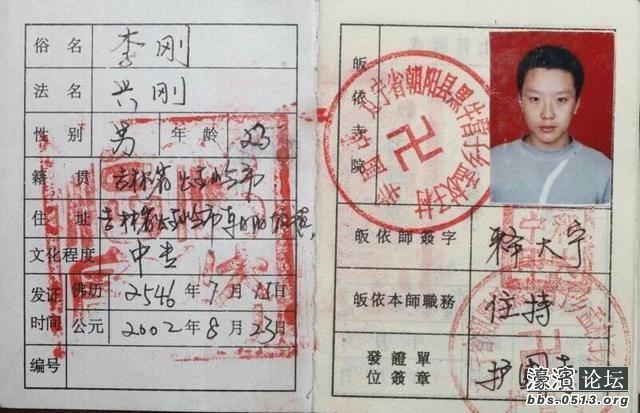 俗名 李刚
法名 兴刚
性别 男 年龄
籍贯 吉林省公主岭市
住址 吉林省公主岭市
文化程度 中专
发证时间 佛历 2546年7月15日
公元 2002年8月23日
编号
皈依寺院
宁省朝阳县黑牛营子乡
皈依師簽字 释大宁
皈依本師職務 住持
發證單
位簽章 护国寺
濠濱论坛
bbs.0513.org